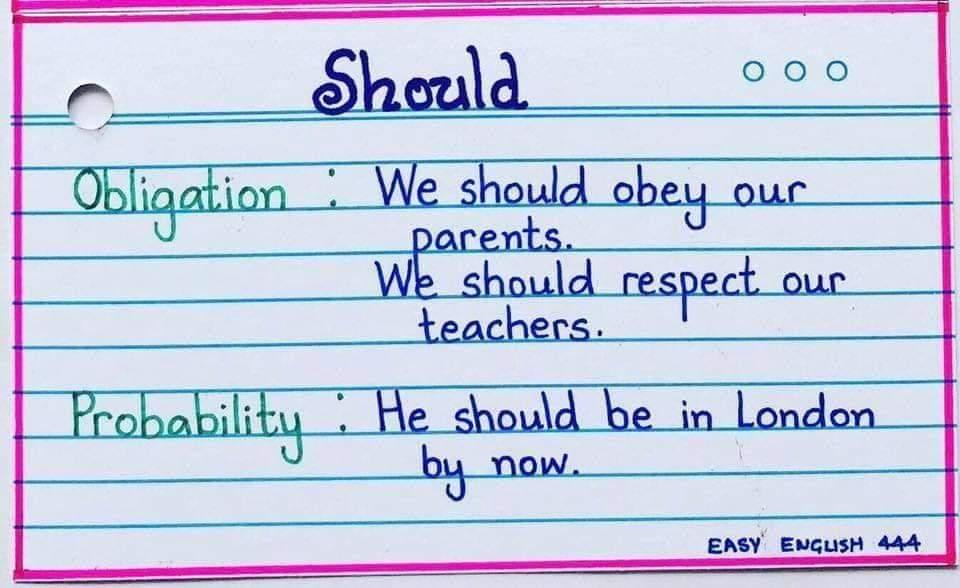 Should
Obligation : We should obey our
parents.
We should respect our
teachers.
Probability : He should be in London
by now.
EASY ENGLISH 444